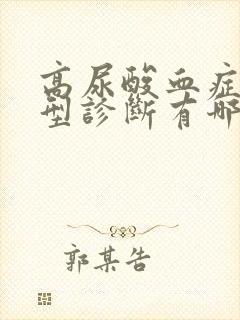 高尿酸血症
型診斷有哪
郭某告